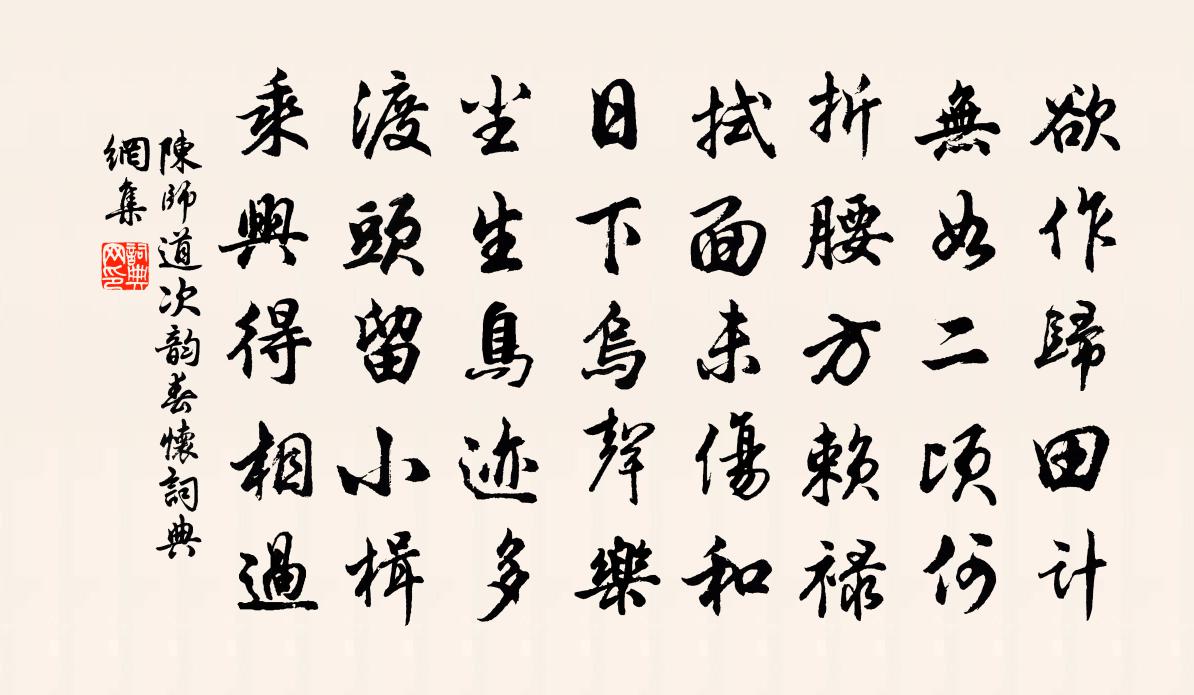 欲作歸田計
無如二頃何
折腰方賴祿
拭面未傷和
日下烏聲樂
塵生鳥迹多
渡頭留小楫
乘興得相過
陳師道次韵春懷詞典
網集
詞典網印